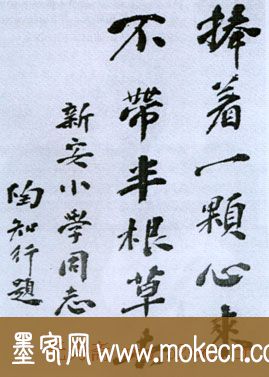 捧着一顆心來
不帶半根草去
新安小學同志
陶知行題
墨客网 www.mokecn.com